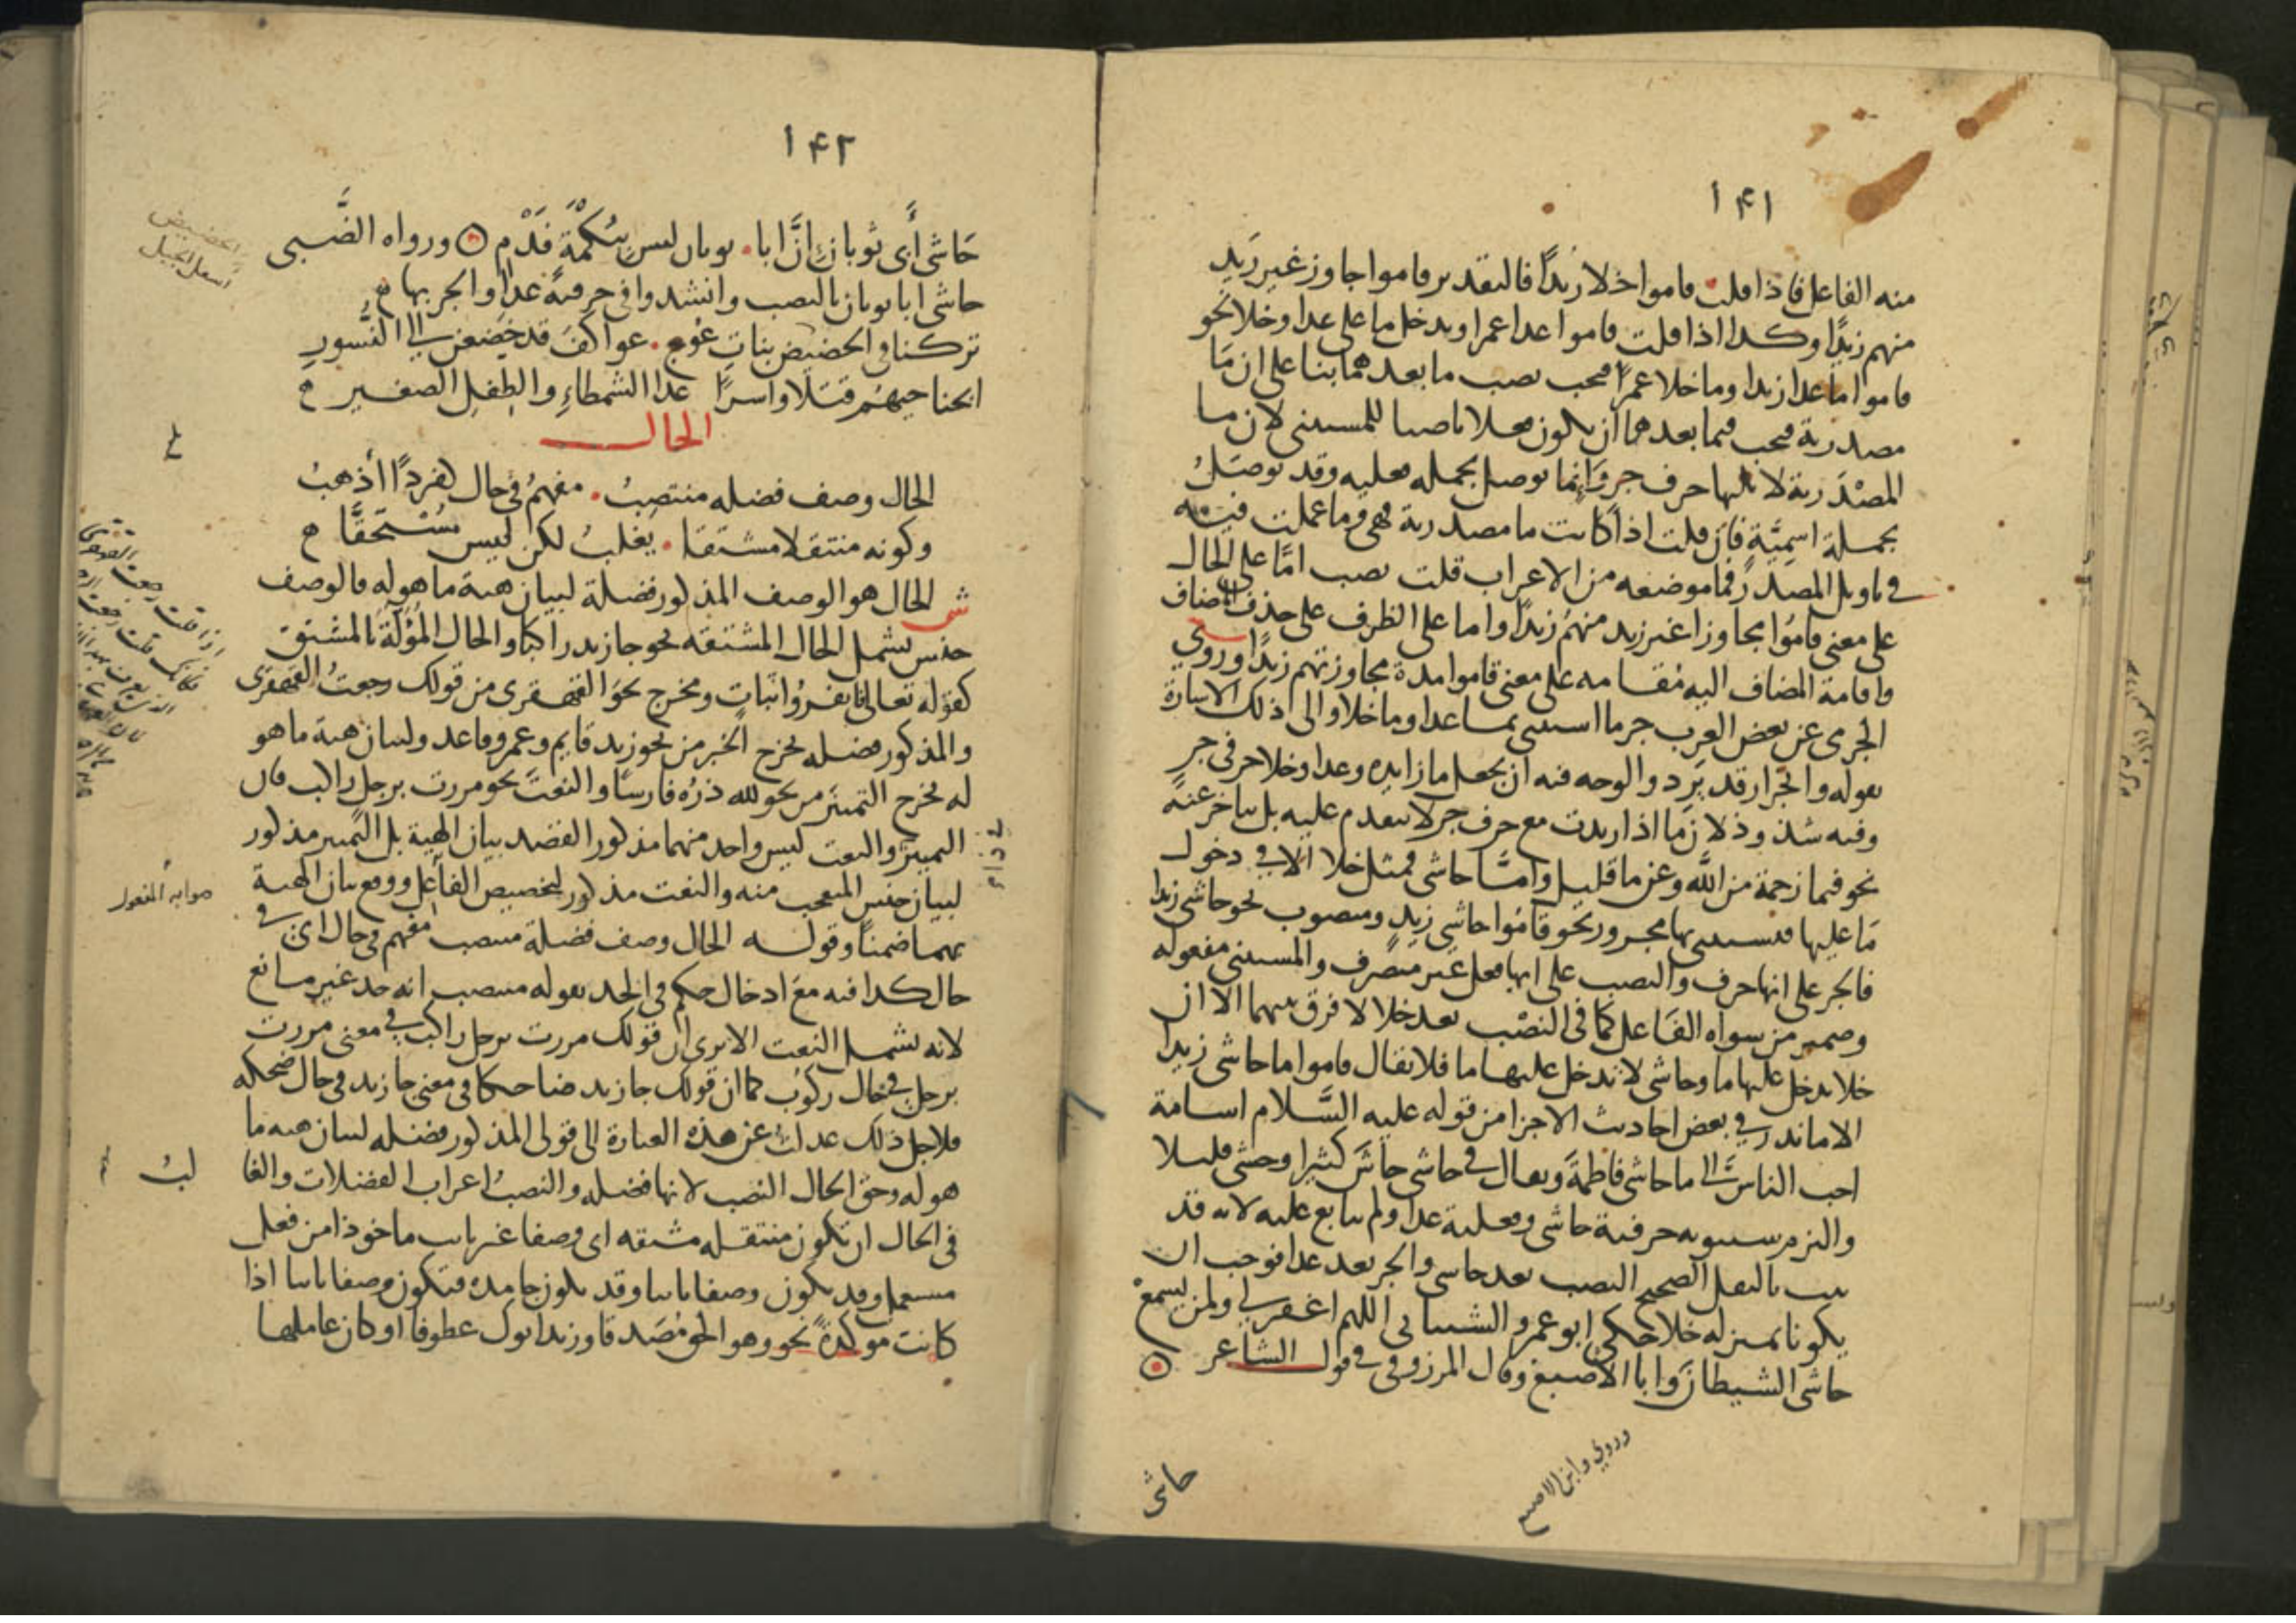 ١٤١
منه الفاعل فاذا قلت قاموا خلا زيدًا فالتقدير قاموا جاوز غير زيد
منهم زيدًا وكذا اذا قلت قاموا عدا عمرا ويدخل ما على عدا وخلا نحو
قاموا ما عدا زيدا وما خلا عمرًا فيجب نصب ما بعدهما بنا على ان مَا
مصدرية فيجب فيما بعدهما ان يكون فعلا ناصبا للمستثنى لان ما
المصْدَرية لا يليها حرف جر وَانما توصل بجمله فعليه وقد توصَلُ
بجملة اسميَّةٍ فان قلت اذا كانت ما مصدرية فهي وما عملت فيه
في تاويل المصدر فما موضعه من الاعراب قلت نصب امَّا على الحال
على معنى قامُوا مجاوزا غير زيد منهُم زيدًا واما على الظرف على حذف المضاف
واقامة المضاف اليه مُقامه على معنى قاموا مدة مجاوزتهم زيدًا وروى
الجرمى عن بعض العرب جر ما استثنى بما عدا وما خلا والى ذلك الاشارة
بقوله وانجرار قد يَرِد والوجه فيه ان يجعل ما زايده وعدا وخلا حرفى جر
وفيه شذوذ لان ما اذا زيدت مع حرف جر لا يتقدم عليه بل يتاخر عنهُ
نحو فبما رحمة من اللَّه وعن ما قليل وامَّا حاشى فمثل خلا الا في دخول
مَا عليها فتستثنى بها مجرور نحو قامُوا حاشى زيدٍ ومنصوب نحو حاشى زيدا
فالجر على انها حرف والنصب على انها فعل غير متصرف والمستثنى مفعوله
وضمير من سواه الفَاعل كما فى النصْب بعد خلا لا فرق بينهما الا ان
خلا يدخل عليها ما وحاشى لا تدخل عليها ما فلا يقال قاموا ما حاشى زيدا
الا ما ندر في بعض احاديث الاجزا من قوله عليه السَّلام اسامة
احب الناس الىَّ ما حاشى فاطمةَ ويقال في حاشى حاشَ كثيرا وحشى قليلا
والتزم سيبويه حرفية حاشى وفعلية عدا ولم يتابع عليه لانه قد
ثبت بالنقل الصحيح النصب بعد حاشى والجر بعد عدا فوجب ان
يكونا بمنزله خلا حكى ابو عمرو الشيبانى اللهم اغفر لي ولمن يسمعْ
حاشى الشيطانَ وابا الاصبغ وقال المرزوقى في قول الشاعر
وروي وابن الاصبع
حاشى
١٤٢
حَاشى أَبى ثوبانَ انَّ ابا ثوبان ليس ببُكْمَةٍ فَدْمِ ورواه الضَّبى
حاشى ابا ثوبان بالنصب وانشدوا فى حرفية عدا والجر بها
تركنا فى الحضيض بنات عُوجٍ عواكفَ قد خضعن الى النُّسورِ
ابحنا حيهُم قتلًا واسرًا عدا الشمطاءِ والطفل الصغير
الحال
الحال وصف فضله منتصبُ مفهمُ في حال كفردًا أذهبُ
وكونه منتقلا مشتقا يغلبُ لكن ليس مُسْتحقَّا
ش الحال هو الوصف المذكور فضلة لبيان هيئة ما هو له فالوصف
جنس يشمل الحال المشتقه نحو جا زيد راكبًا والحال المُؤَلة بالمشتق
كقوله تعالى فانفرُوا ثبات ومخرج نحوَ القهقرى من قولك رجعتُ القهقرى
والمذكور فضله مخرج الخبر من نحو زيد قايم وعمرو قاعد ولبيان هيئة ما هو
له مخرج التمييز من نحو لله درُّه فارسًا والنعتَ نحو مررت برجل راكب فان
التمييز والنعت ليس واحد منهما مذكور القصد بيان الهيئة بل التمييز مذكور
لبيان جنس المتعجب منه والنعت مذكور لتخصيص الفاعل ووقع بيان الهيئة
بهما ضمنًا وقوله الحال وصف فضلة منتصب مفهم في حال اى في
حال كذا فيه مع ادخال حكم في الحد بقوله منتصب انه حد غير مانع
لانه يشمل النعت الا يرى ان قولك مررت برجل راكب في معنى مررت
برجل في حال ركوبه كما ان قولك جا زيد ضاحكا في معنى جا زيد في حال ضحكه
فلاجل ذلك عدلتُ عن هذه العبارة الى قولى المذكور فضله لبيان هيئة ما
هو له وحق الحال النصب لانها فضله والنصبُ اعراب الفضلات والغا
لبُ
في الحال ان تكون منتقله مشتقه اى وصفا غير ثابت ماخوذا من فعل
مستعمل وقد يكون وصفا ثابتا وقد يكون جامده فتكون وصفا ثابتا اذا
كانت موكدةً نحو وهو الحق مُصَدقا وزيد ابوك عطوفا او كان عاملها
الحضيض
اسفل الجبل
صوابه المفعول